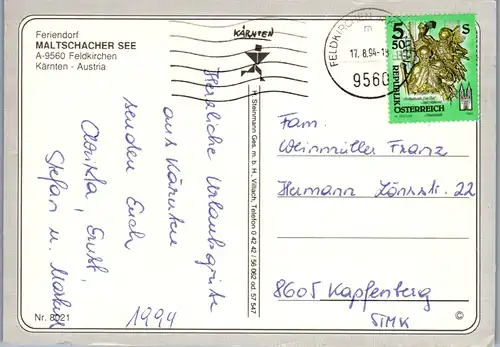 Feriendorf
MALTSCHACHER SEE
A-9560 Feldkirchen
Kärnten - Austria
KÄRNTEN
FELDKIRCHEN
17.8.94-18
9560
5.50 S
REPUBLIK
ÖSTERREICH
Herzliche Urlaubsgrüße
aus Kärnten
senden Euch
Christa, Ernst,
Stefan u. Markus
1994
H. Steinmann Ges. m. b. H., Villach, Telefon 0 42 42 / 56 062 od. 57 547
Fam.
Weinmüller Franz
Hermann Lönsstr. 22
8605 Kapfenberg
STMK
Nr. 8021
©